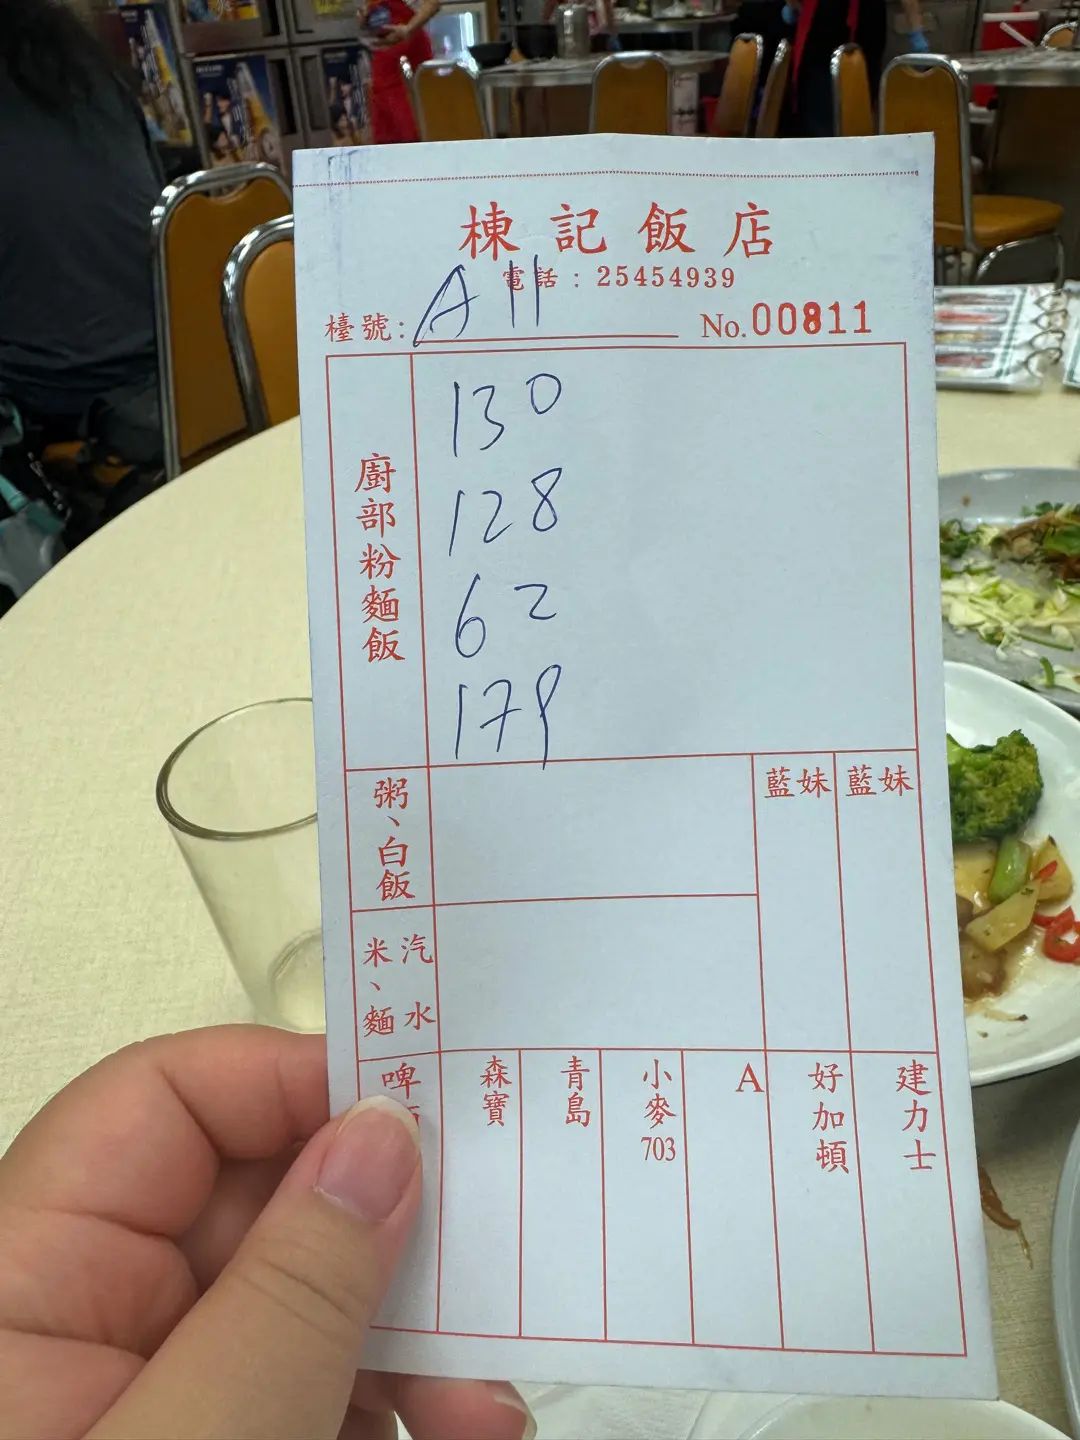 棟記飯店
電話：25454939
檯號： A11 No.00811
廚部粉麵飯
130
128
62
179
粥、白飯
藍妹 藍妹
米、麵 汽水
啤 森寶 青島 小麥703 A 好加頓 建力士